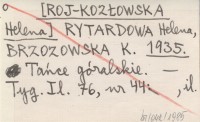 [ROJ-KOZŁOWSKA
Helena] RYTARDOWA Helena,
BRZOZOWSKA K. 1935.
Tańce góralskie. —
Tyg. Il. 76, nr 44: , il.